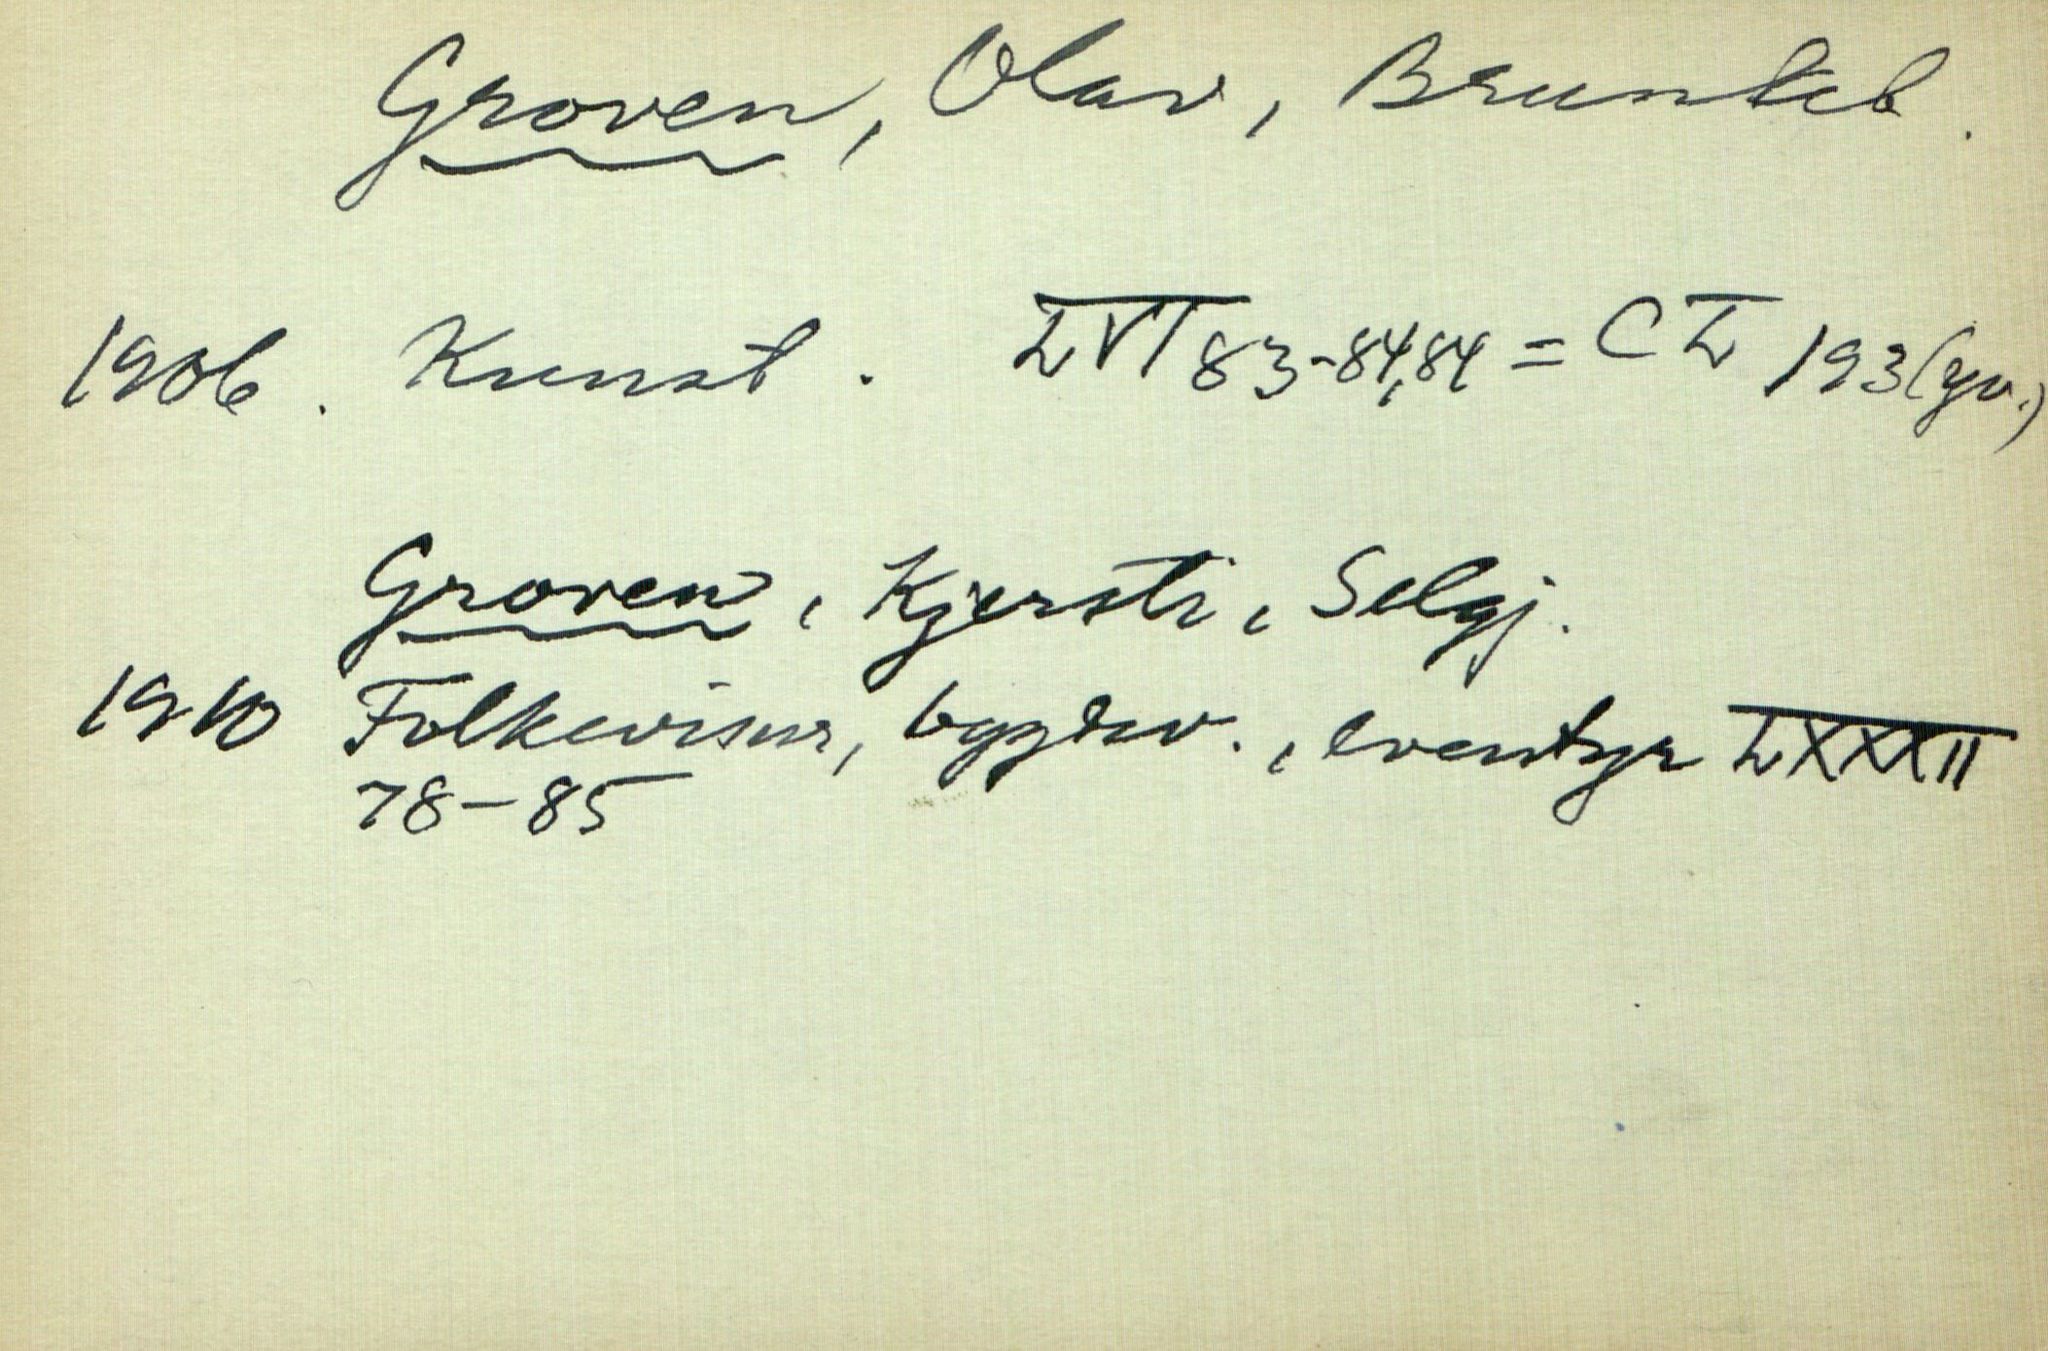 Groven, Olav, Brunkeb.
1906. Kunst. LVI 83-84,84 = CL 193 (yv.)
Groven, Kjersti, Selgj.
1910 Folkevisur, bygdev., eventyr LXXXII
78-85